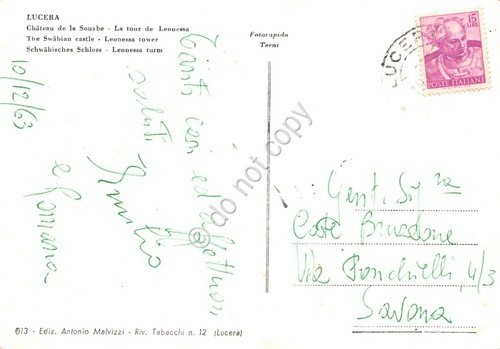 LUCERA
Château de la Souabe - La tour de Leonessa
The Swäbian castle - Leonessa tower
Schwäbisches Schloss - Leonessa turm
Fotorapido
Terni
15
LIRE
POSTE ITALIANE
LUCERA
10/12/63
Tanti cari ed affettuosi
saluti
e Romana
Gent. Sig.na
Via Ponchielli, 4/3
Savona
do not copy
013 - Ediz. Antonio Malvizzi - Riv. Tabacchi n. 12 (Lucera)